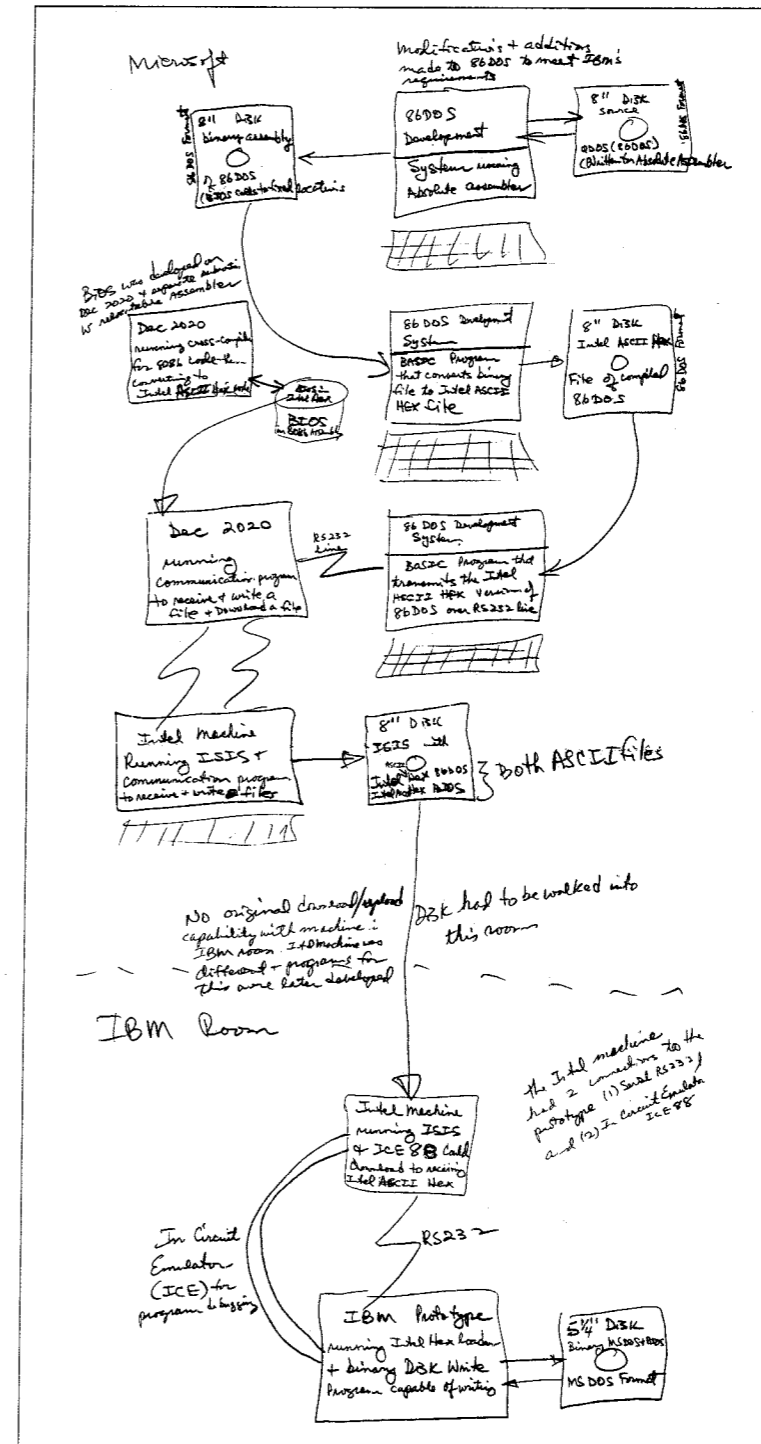 Microsoft
Modificatio's + additions
made to 86DOS to meet IBM's
requirements
86DOS Format
8" Disk
binary assembly
of 86DOS
(BIOS calls to fixed locations
86DOS
Development
System running
Absolute assembler
8" Disk
source
QDOS (86DOS)
(Written for Absolute Assembler
86DOS Format
BIOS was developed on
Dec 2020 + separate
w relocatable Assembler
Dec 2020
running cross-compiler
for 8086 code
converting to
Intel ASCII Hex
BIOS in
Intel Hex
BIOS
in 8086
86 DOS Development
System
BASIC Program
that converts binary
file to Intel ASCII
HEX file
8" Disk
Intel ASCII Hex
File of compiled
86DOS
86DOS Format
Dec 2020
running
communication program
to receive + write a
file + Download a file
RS232
line
86 DOS Development
System
BASIC Program that
transmits the Intel
ASCII HEX version of
86DOS over RS232 line
Intel Machine
Running ISIS +
Communication program
to receive + write files
8" Disk
ISIS with
ASCII
Intel Hex 86DOS
Intel Hex BIOS
Both ASCII files
No original download/upload
capability with machine i
IBM room. Intel Machine was
different + programs for
this were later developed
Disk had to be walked into
this room
IBM Room
the Intel machine
had 2 connections to the
prototype (1) Serial RS232
and (2) In Circuit Emulator
ICE 88
Intel Machine
running ISIS
& ICE 88
download to receiving
Intel ASCII Hex
In Circuit
Emulator
(ICE) for
program debugging
RS232
IBM Prototype
running Intel Hex loader
+ binary Disk Write
Program capable of writing
5¼" Disk
Binary MSDOS+BIOS
MS DOS Format